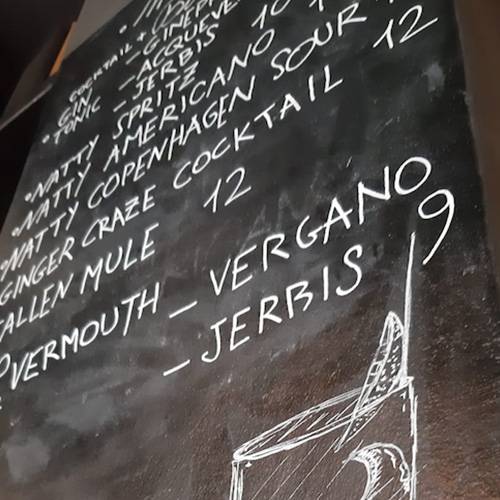 COCKTAIL +
• GIN - GINEPR
TONIC - ACQUEVE
- JERBIS 10
• NATTY SPRITZ
• NATTY AMERICANO
• NATTY COPENHAGEN SOUR 12
• GINGER CRAZE COCKTAIL
ALLEN MULE 12
VERMOUTH - VERGANO 9
- JERBIS